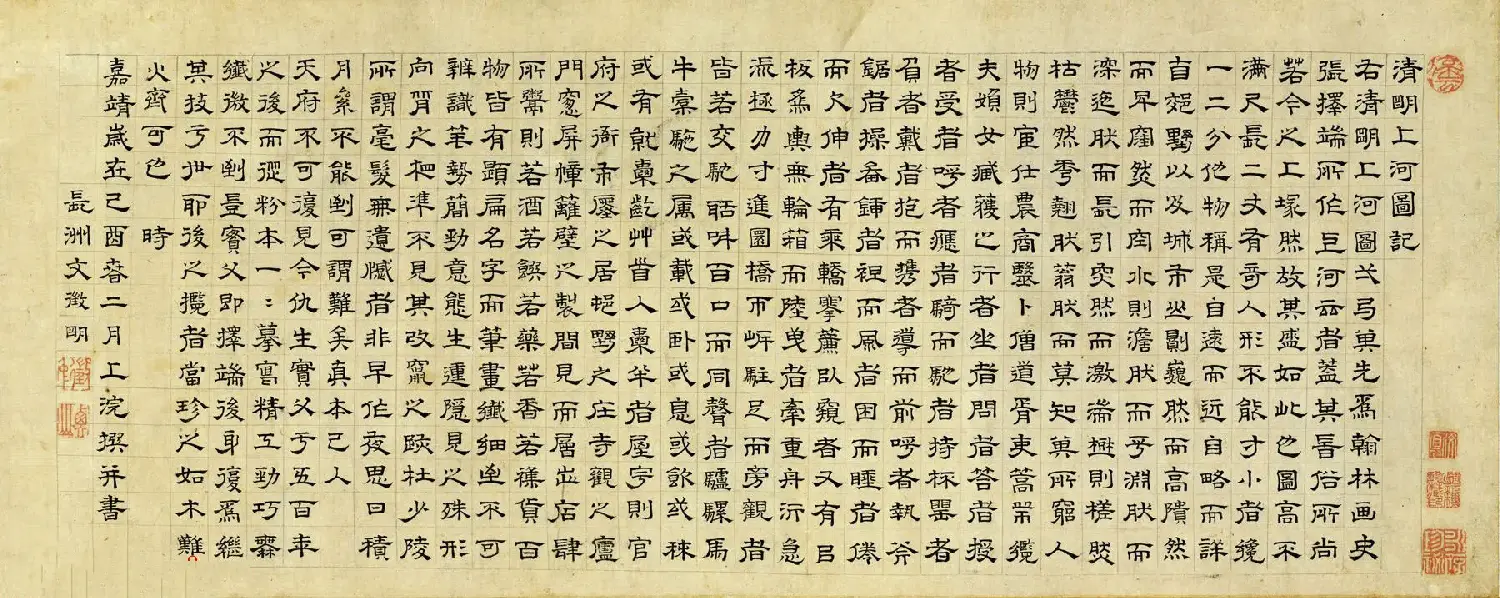 清明上河圖記
右清明上河圖弌弓其先爲翰林画史
張擇端所作上河云者蓋其旹俗所尚
若今之上塚然故其盛如此也圖高不
滿尺長二丈有奇人形不能寸小者纔
一二分他物稱是自遠而近自略而詳
自郊野以及城市山則巍然而高隤然
而卑窪然而空水則澹然而平淵然而
深迤然而長引突然而激湍樹則槎然
枯鬱然秀翹然蓊然而莫知其所窮人
物則宦仕農商毉卜僧道胥吏篙帀纜
夫婦女臧獲之行者坐者問者答者授
者受者呼者應者騎而馳者持杯罌者
負者戴者抱而携者導而前呼者執斧
鋸者操畚鍤者袒而風者困而睡者倦
而欠伸者有乘轎搴簾臥窺者又有㠯
板爲輿無輪箱而陸曳者牽重舟泝急
流極力寸進圜橋帀岸駐足而旁觀者
皆若交馳聒叫百口而同聲者驢騾馬
牛橐駞之屬或載或臥或息或飲或秣
或有就囊齕艸首入囊半者屋宇則官
府之衙市廛之居邨野之庄寺觀之廬
門窓屏幛籬壁之製間見而層出店肆
所鬻則若酒若饌若藥若香若襍貨百
物皆有題扁名字而筆畫纖細幾不可
辨識筆勢簡勁意態生運隱見之殊形
向背之相準不見其改竄之跡杜少陵
所謂毫髮無遺憾者非早作夜思日積
月絫不能到可謂難矣真本已入
天府不可復見今仇生實父于五百年
之後而從粉本一二摹寫精工勁巧靡
纖微不到豈實父即擇端後身復爲繼
其技于世耶後之攬者當珍之如木難
火齊可也 時
嘉靖歲在己酉春二月上浣撰并書
長洲文徵明